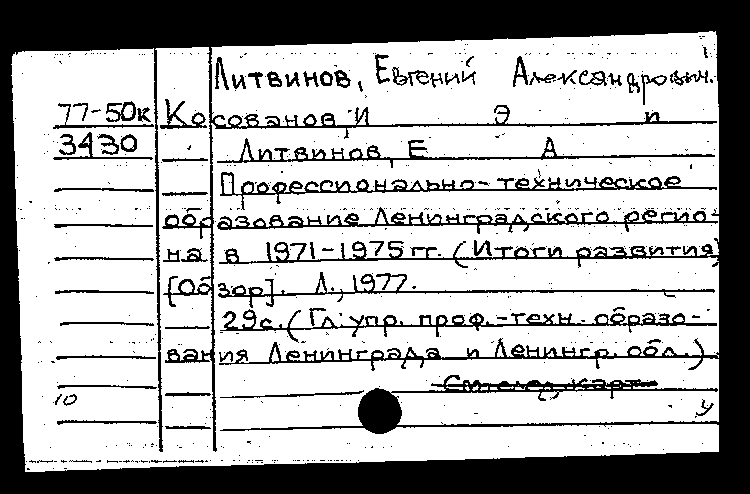 Литвинов, Евгений Александрович.
77-50к Косованов, И Э и
3430 Литвинов, Е А
Профессионально-техническое
образование Ленинградского регио-
на в 1971-1975 гг. (Итоги развития)
[Обзор]. Л., 1977.
29с. (Гл. упр. проф.-техн. образо-
вания Ленинграда и Ленингр. обл.)
См. след. карт
10 у